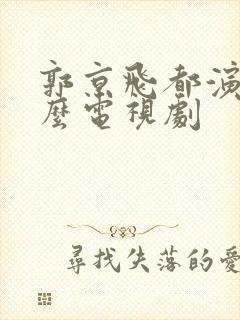 郭京飛都演
麼電視劇
尋找失落的愛